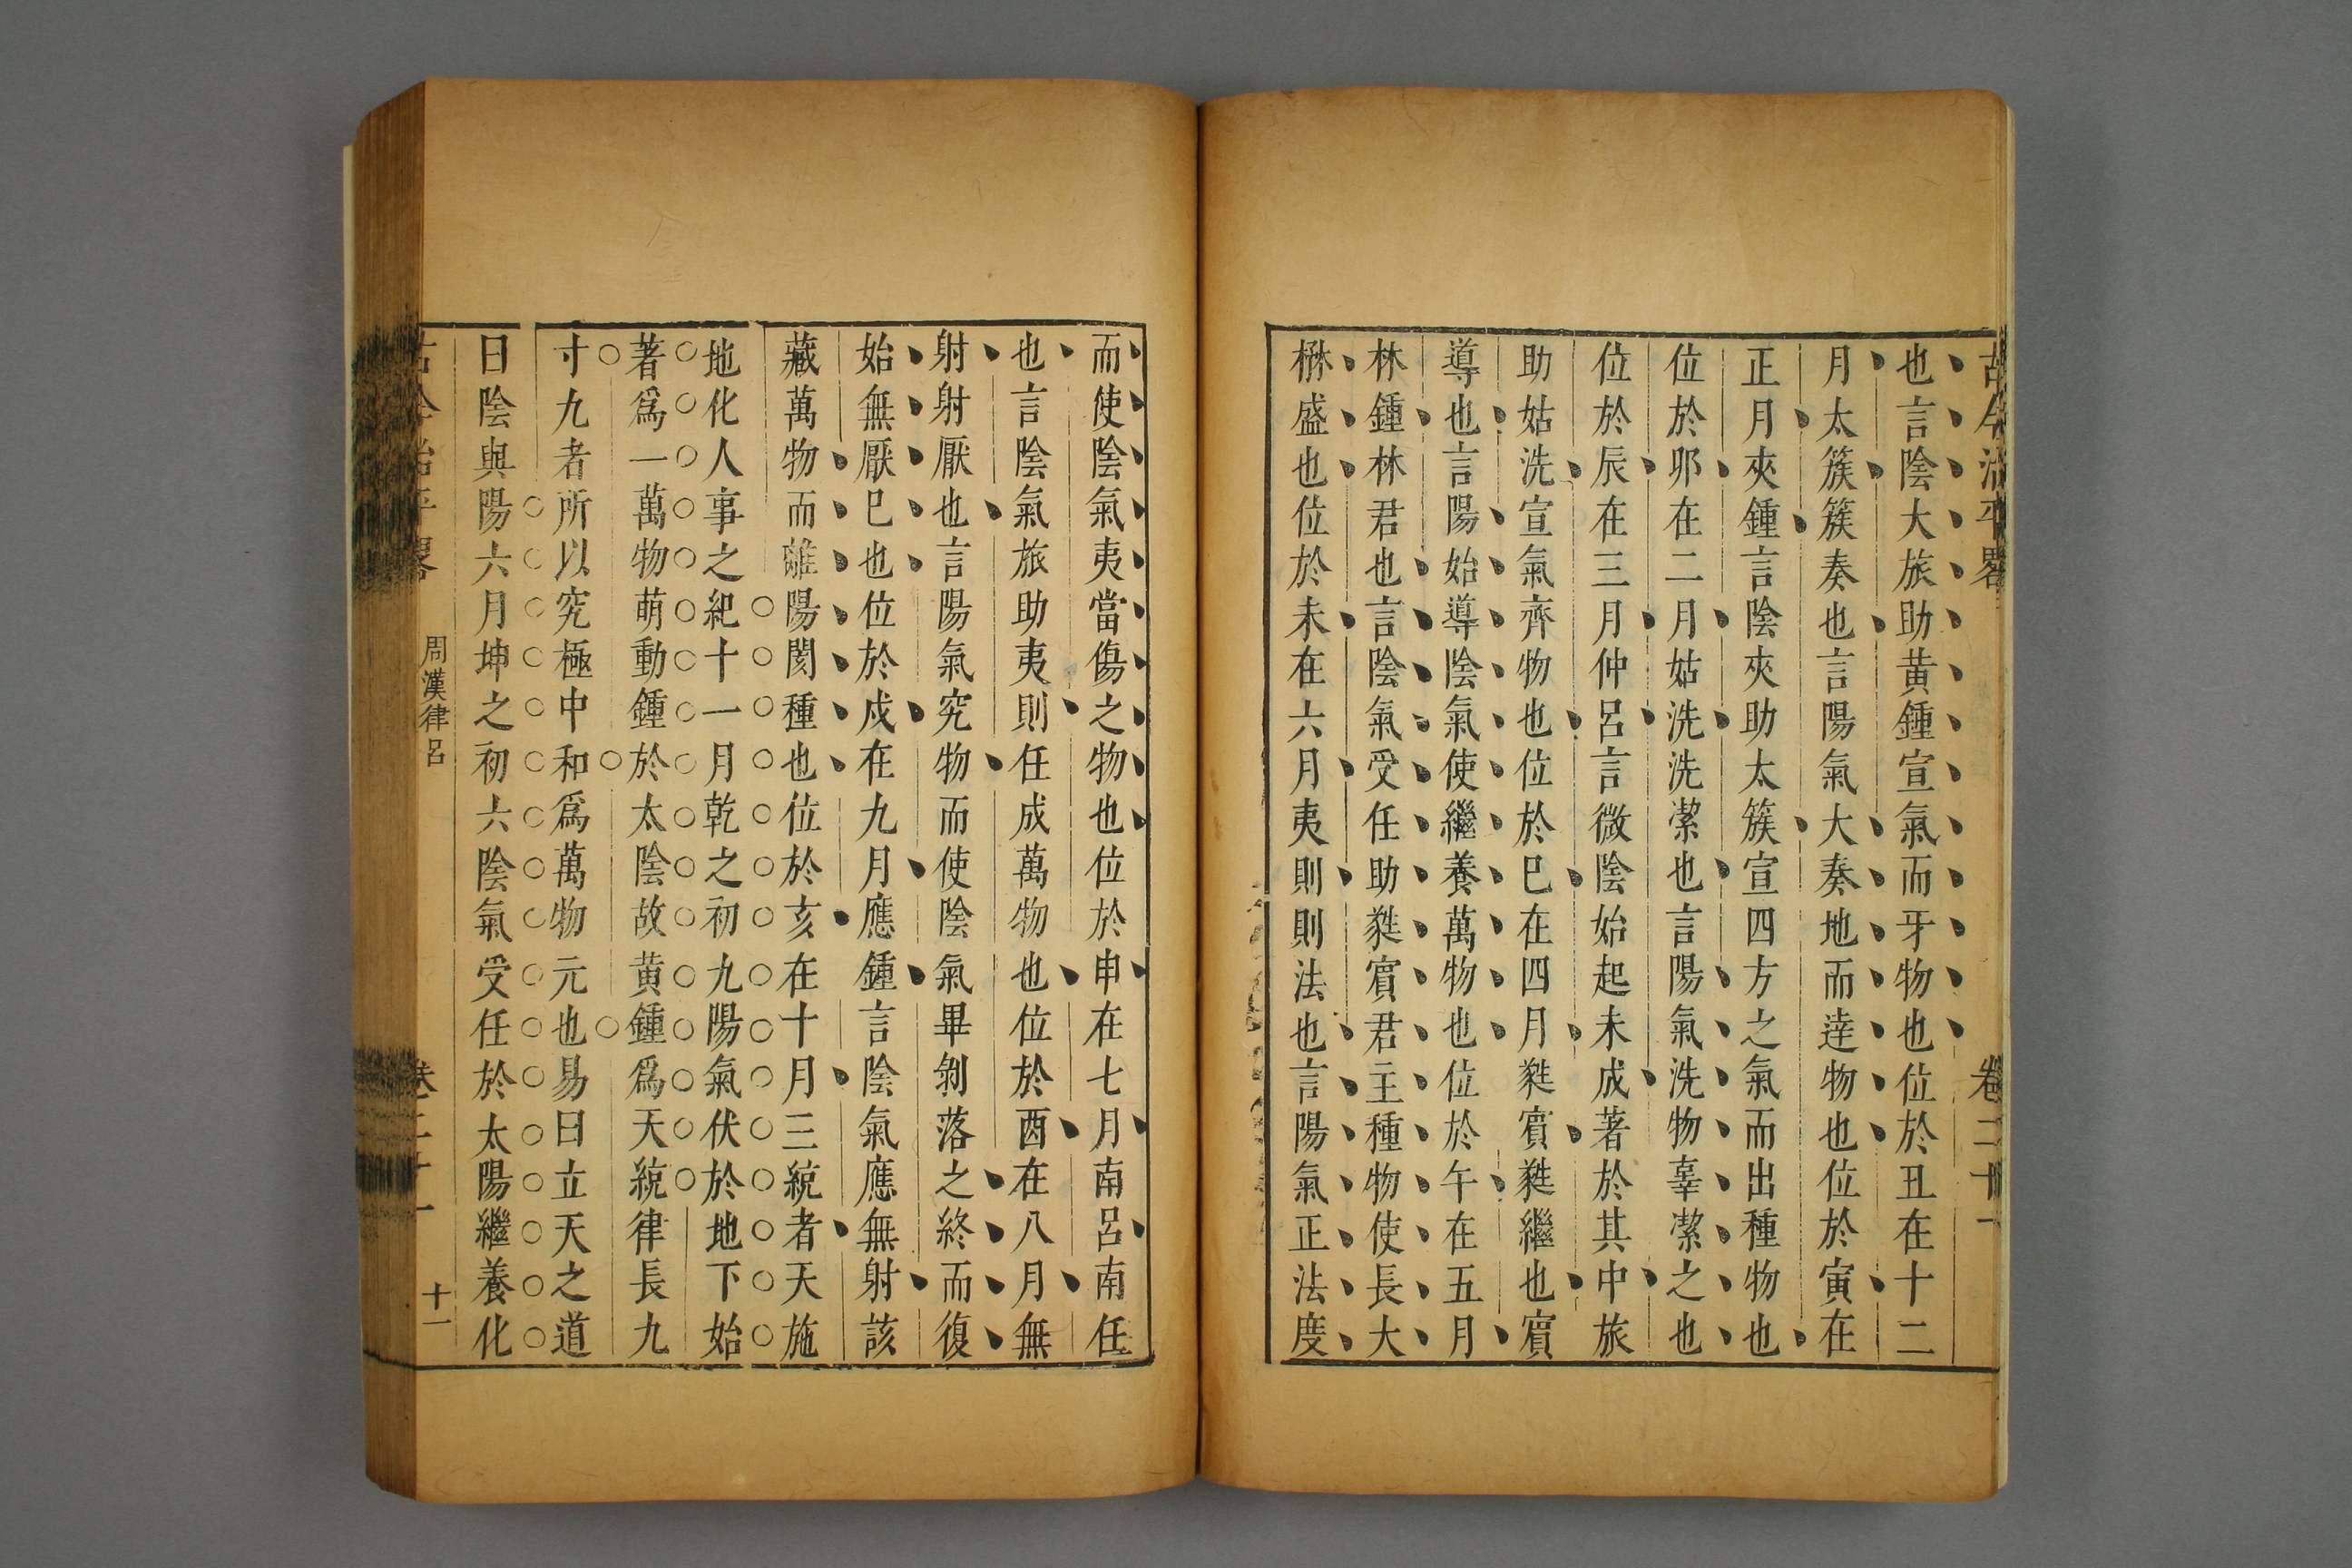 古今治平畧 卷二十一
也言陰大旅助黄鍾宣氣而牙物也位於丑在十二
月太簇簇奏也言陽氣大奏地而逹物也位於寅在
正月夾鍾言陰夾助太簇宣四方之氣而出種物也
位於卯在二月姑洗洗潔也言陽氣洗物辜潔之也
位於辰在三月仲呂言微陰始起未成著於其中旅
助姑洗宣氣齊物也位於巳在四月蕤賔蕤繼也賔
導也言陽始導陰氣使繼養萬物也位於午在五月
林鍾林君也言陰氣受任助蕤賔君主種物使長大
楙盛也位於未在六月夷則則法也言陽氣正法度
而使陰氣夷當傷之物也位於申在七月南呂南任
也言陰氣旅助夷則任成萬物也位於酉在八月無
射射厭也言陽氣究物而使陰氣畢剝落之終而復
始無厭已也位於戌在九月應鍾言陰氣應無射該
藏萬物而雜陽閡種也位於亥在十月三統者天施
地化人事之紀十一月乾之初九陽氣伏於地下始
著爲一萬物萌動鍾於太陰故黄鍾爲天統律長九
寸九者所以究極中和爲萬物元也易曰立天之道
曰陰與陽六月坤之初六陰氣受任於太陽繼養化
古今治平畧 周漢律呂 卷二十一 十一